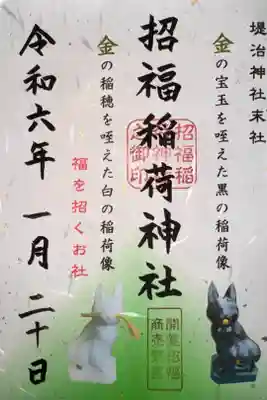 堤治神社末社
金の宝玉を咥えた黒の稲荷像
招福稲荷神社
招福稲
荷神社
之御印
金の稲穂を咥えた白の稲荷像
福を招くお社
令和六年 一月 二十日
開運招福
商売繁盛